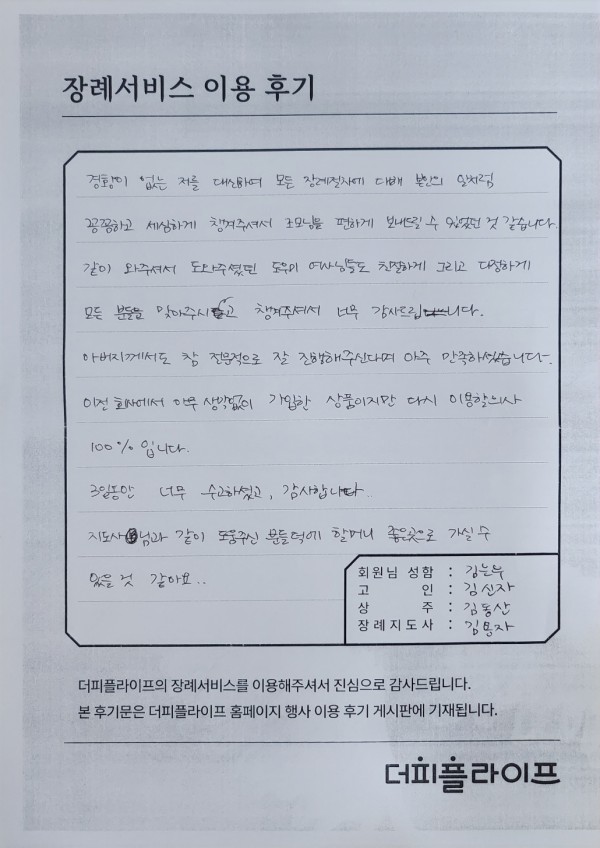 장례서비스 이용 후기
경황이 없는 저를 대신하여 모든 장례절차에 대해 본인의 일처럼
꼼꼼하고 세심하게 챙겨주셔서 조모님을 편하게 보내드릴 수 있었던 것 같습니다.
같이 와주셔서 도와주셨던 도우미 여사님들도 친절하게 그리고 다정하게
모든 분들을 맞아주시고 챙겨주셔서 너무 감사드립니다.
아버지께서도 참 전문적으로 잘 진행해주신다며 아주 만족하셨습니다.
이전 회사에서 아무 생각없이 가입한 상품이지만 다시 이용할의사
100% 입니다.
3일동안 너무 수고하셨고, 감사합니다..
지도사님과 같이 도움주신 분들덕에 할머니 좋은곳으로 가실 수
있을 것 같아요..
회원님 성함 : 김는우
고 인 : 김신자
상 주 : 김동산
장례지도사 : 김용자
더피플라이프의 장례서비스를 이용해주셔서 진심으로 감사드립니다.
본 후기문은 더피플라이프 홈페이지 행사 이용 후기 게시판에 기재됩니다.
더피플라이프